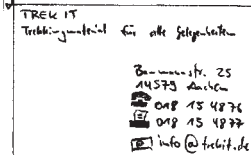 TREK IT
Trekkingmaterial für alle Gelegenheiten
Baumannstr. 25
14579 Aachen
018 15 4876
018 15 4877
info@trekit.de